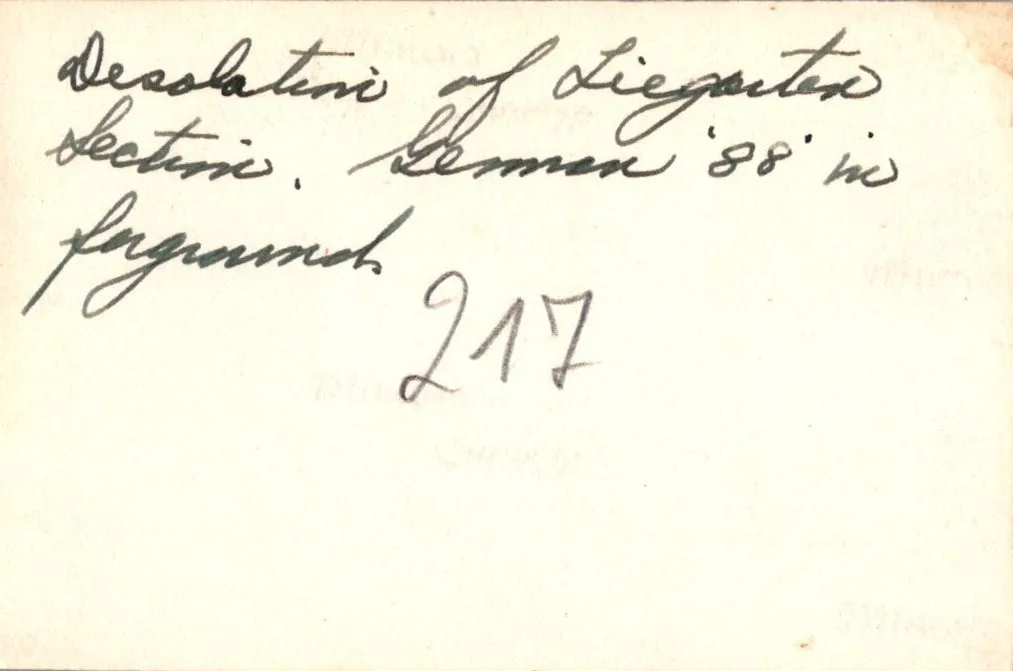 Desolation of Tiegarten
Section. German '88' in
forground.
217